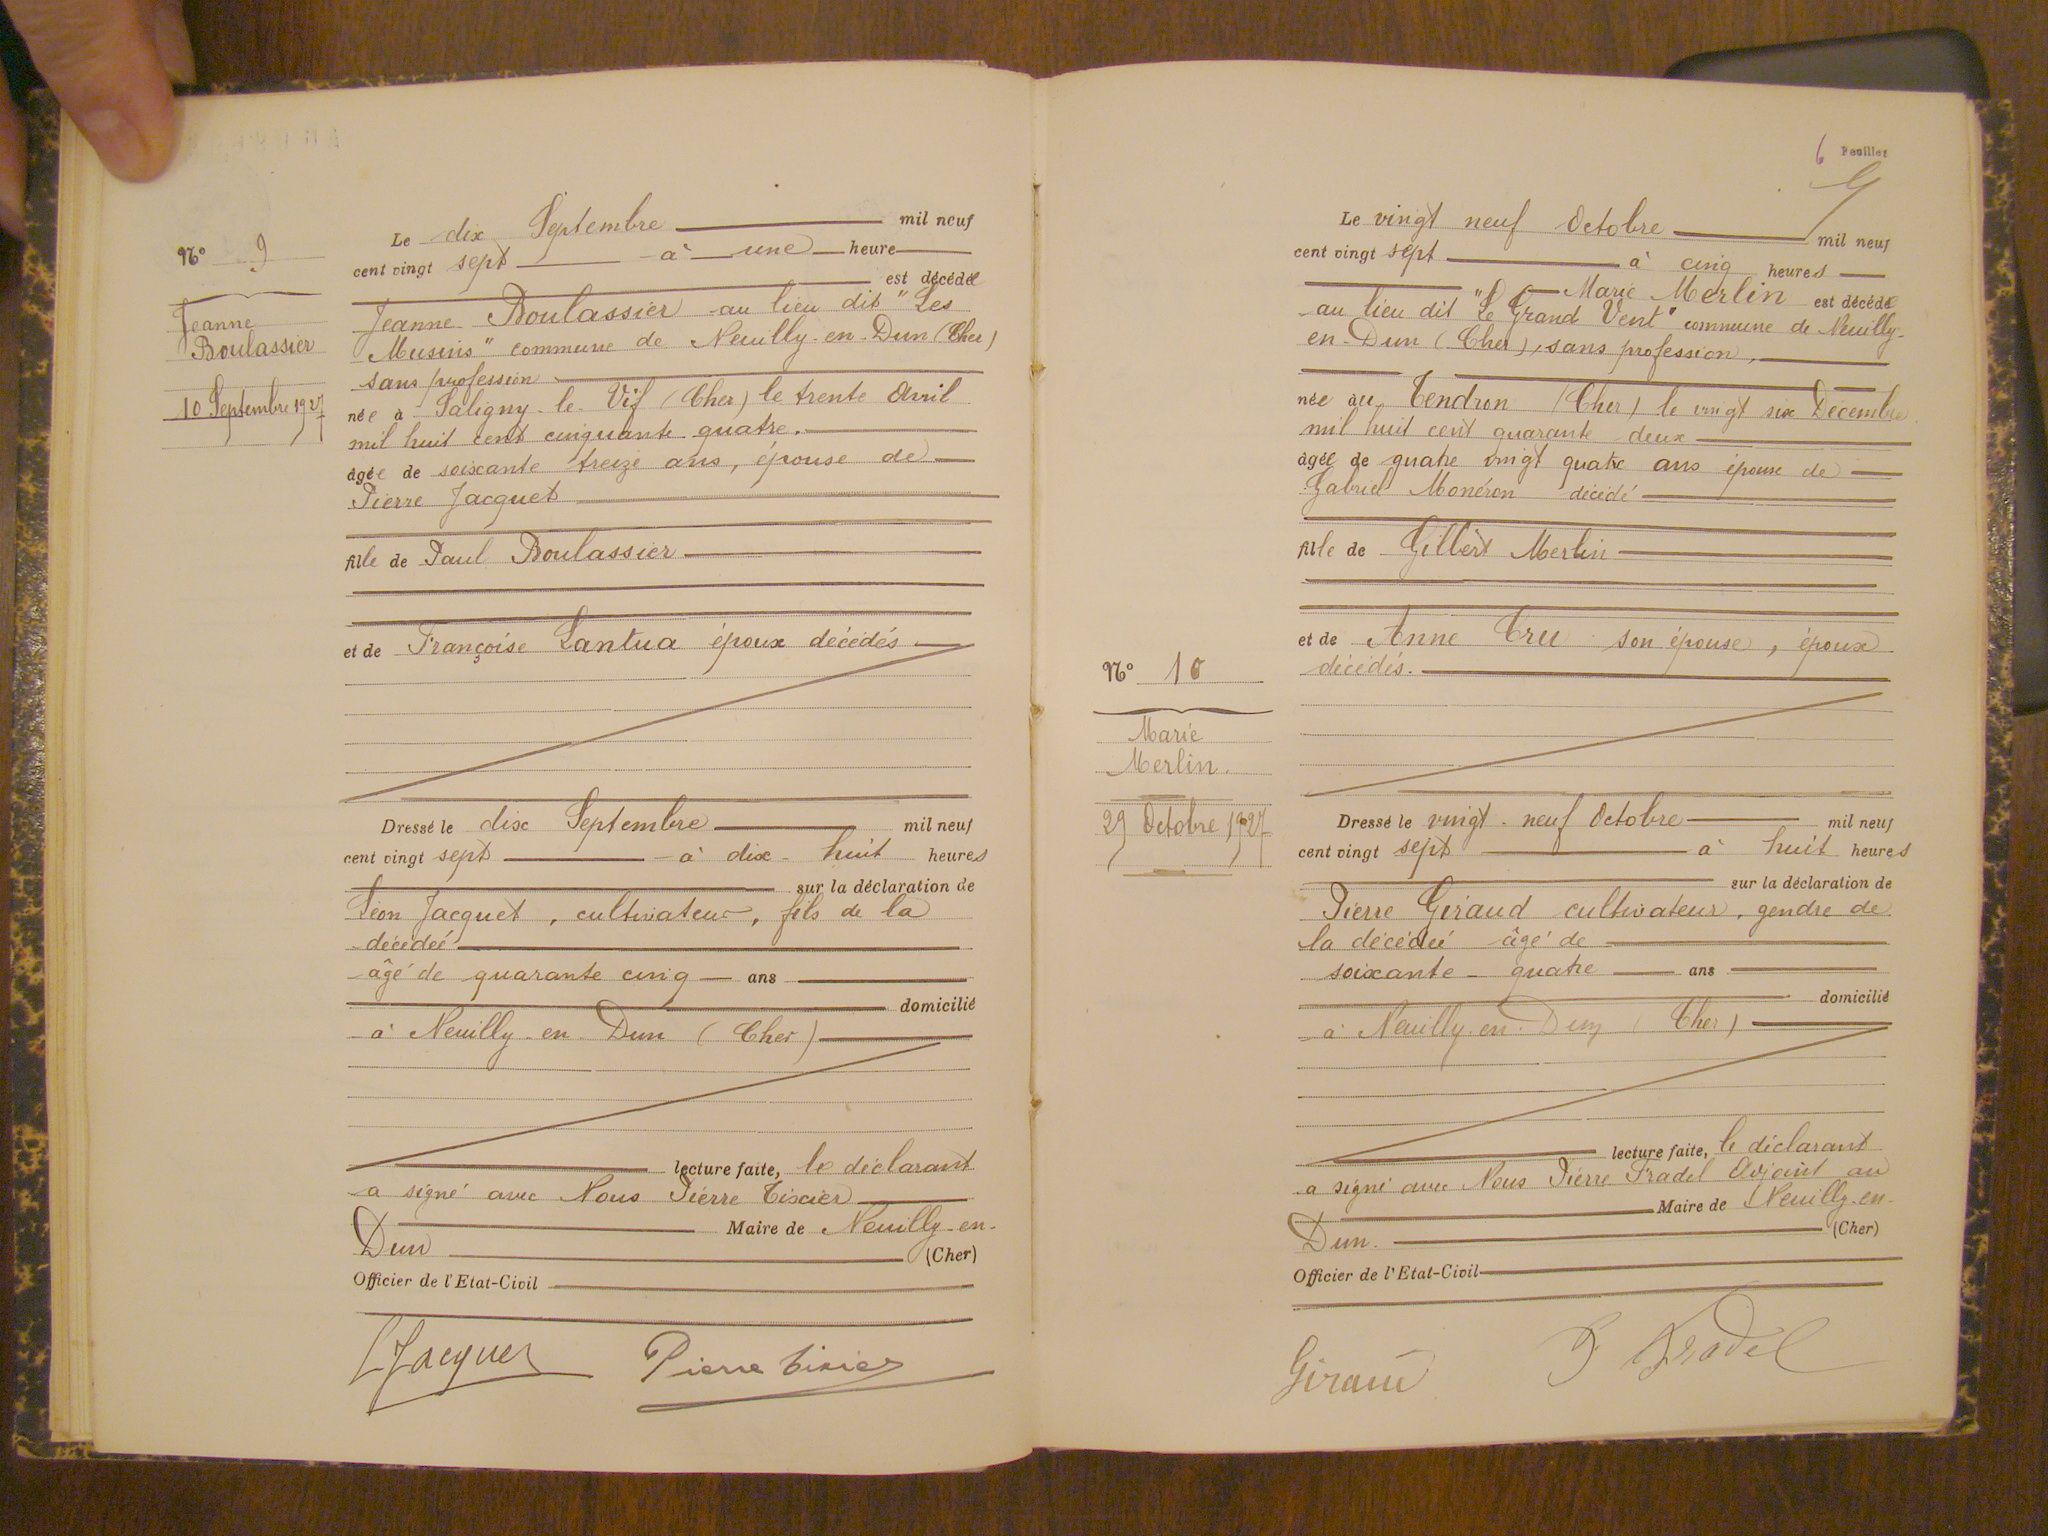 N° 9
Jeanne
Boulassier
10 Septembre 1927
Le dix Septembre mil neuf
cent vingt sept à une heure
est décédée
Jeanne Boulassier au lieu dit "Les
Musins" commune de Neuilly-en-Dun (Cher)
sans profession
née à Saligny-le-Vif (Cher) le trente Avril
mil huit cent cinquante quatre.
âgée de soixante treize ans, épouse de
Pierre Jacquet
fille de Paul Boulassier
et de Françoise Lantua époux décédés
Dressé le dix Septembre mil neuf
cent vingt sept à dix-huit heures
sur la déclaration de
Léon Jacquet, cultivateur, fils de la
décédée
âgé de quarante cinq ans
domicilié
à Neuilly-en-Dun (Cher)
lecture faite, le déclarant
a signé avec Nous Pierre Tixier
Maire de Neuilly-en-
Dun (Cher)
Officier de l'Etat-Civil
LJacquet Pierre Tixier
6 Feuillet
N° 10
Marie
Merlin.
29 Octobre 1927
Le vingt neuf Octobre mil neuf
cent vingt sept à cinq heures
Marie Merlin est décédée
au lieu dit "Le Grand Vent" commune de Neuilly-
en-Dun (Cher), sans profession,
née au Tendron (Cher) le vingt six Décembre
mil huit cent quarante deux
âgée de quatre vingt quatre ans épouse de
Gabriel Monéron décédé
fille de Gilbert Merlin
et de Anne Tru son épouse, époux
décédés.
Dressé le vingt-neuf Octobre mil neuf
cent vingt sept à huit heures
sur la déclaration de
Pierre Giraud cultivateur, gendre de
la décédée âgé de
soixante-quatre ans
domicilié
à Neuilly-en-Dun (Cher)
lecture faite, le déclarant
a signé avec Nous Pierre Fradel Adjoint au
Maire de Neuilly-en-
Dun. (Cher)
Officier de l'Etat-Civil
Giraud P. Fradel